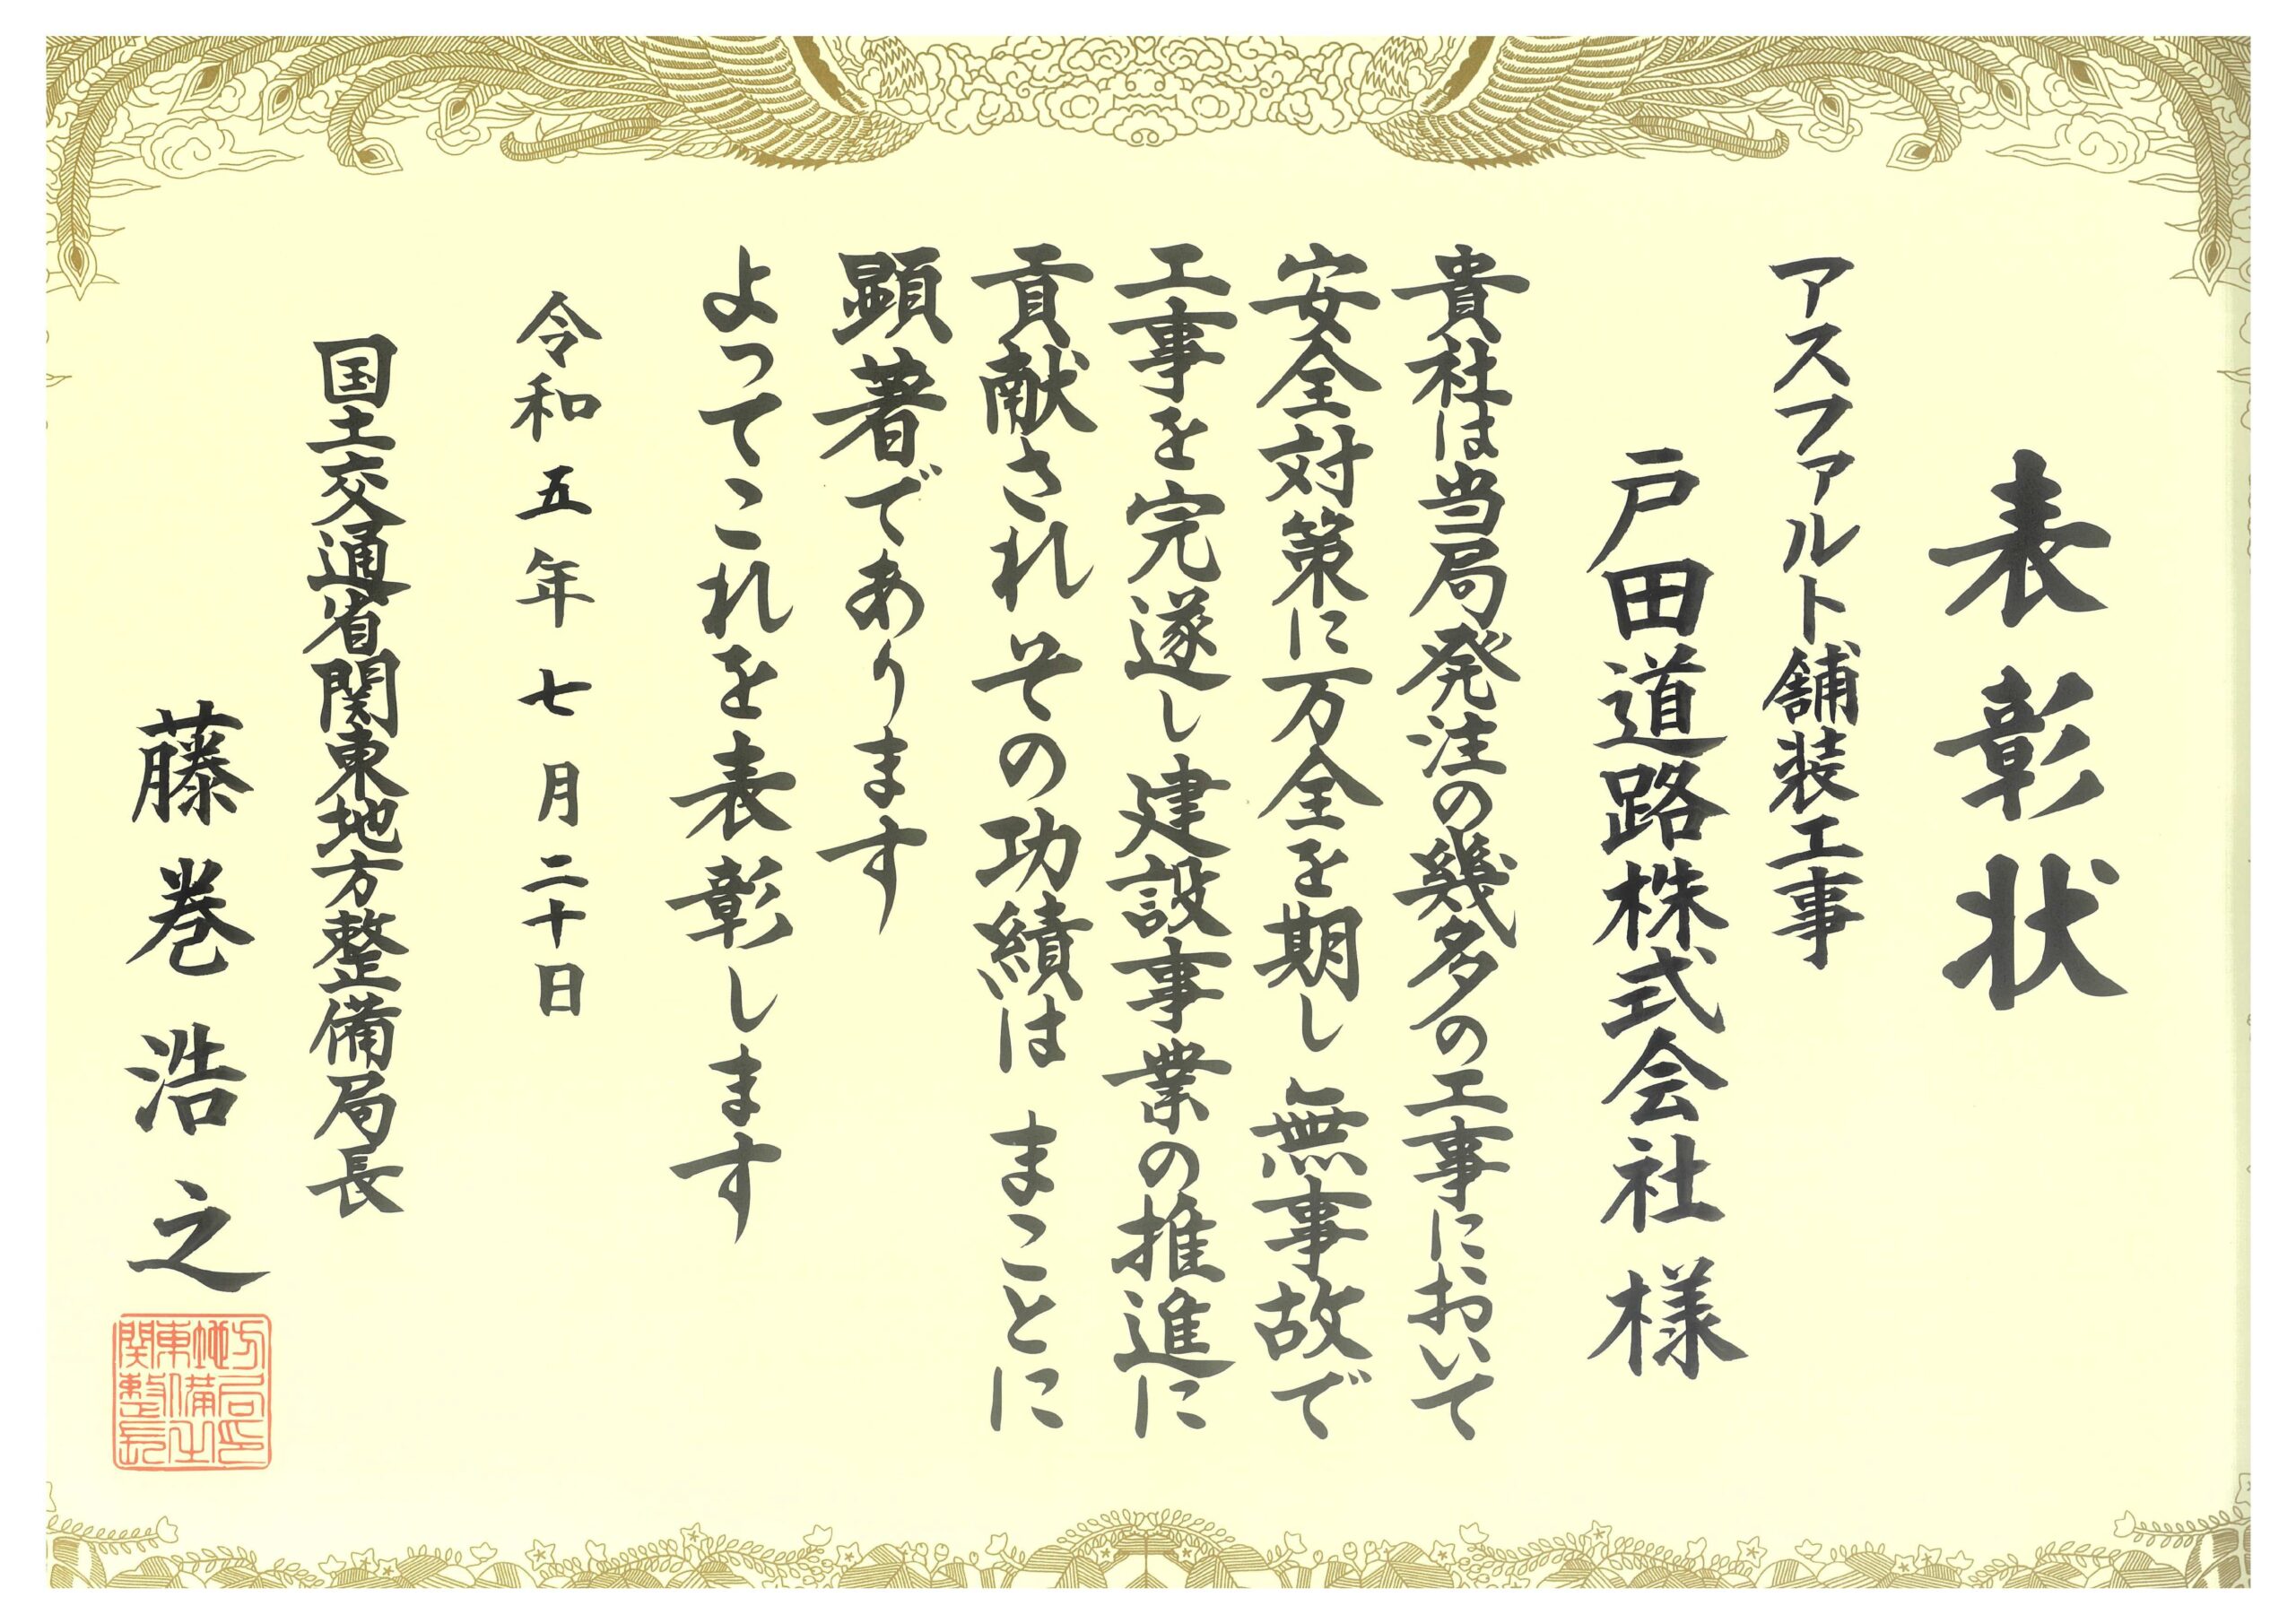 表彰状
アスファルト舗装工事
戸田道路株式会社様
貴社は当局発注の幾多の工事において
安全対策に万全を期し無事故で
工事を完遂し建設事業の推進に
貢献されその功績はまことに
顕著であります
よってこれを表彰します
令和五年七月二十日
国土交通省関東地方整備局長
藤巻浩之
関東地方
整備局
長之印